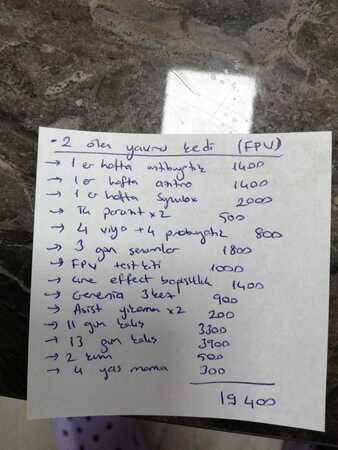 - 2 ölen yavru kedi (FPV)
→ 1 er hafta antibiyotik 1400
→ 1 er hafta amino 1400
→ 1 er hafta Synulox 2000
→ İç parazit x2 500
→ 4 viyo + 4 probiyotik 800
→ 3 gün serumlar 1800
→ FPV test kiti 1000
→ effect bağışıklık 1400
→ Cerenia 3 kez 900
→ Asist yıkama x2 200
→ 11 gün kalış 3300
→ 13 gün kalış 3900
→ 2 kum 500
→ 4 yaş mama 300
19400